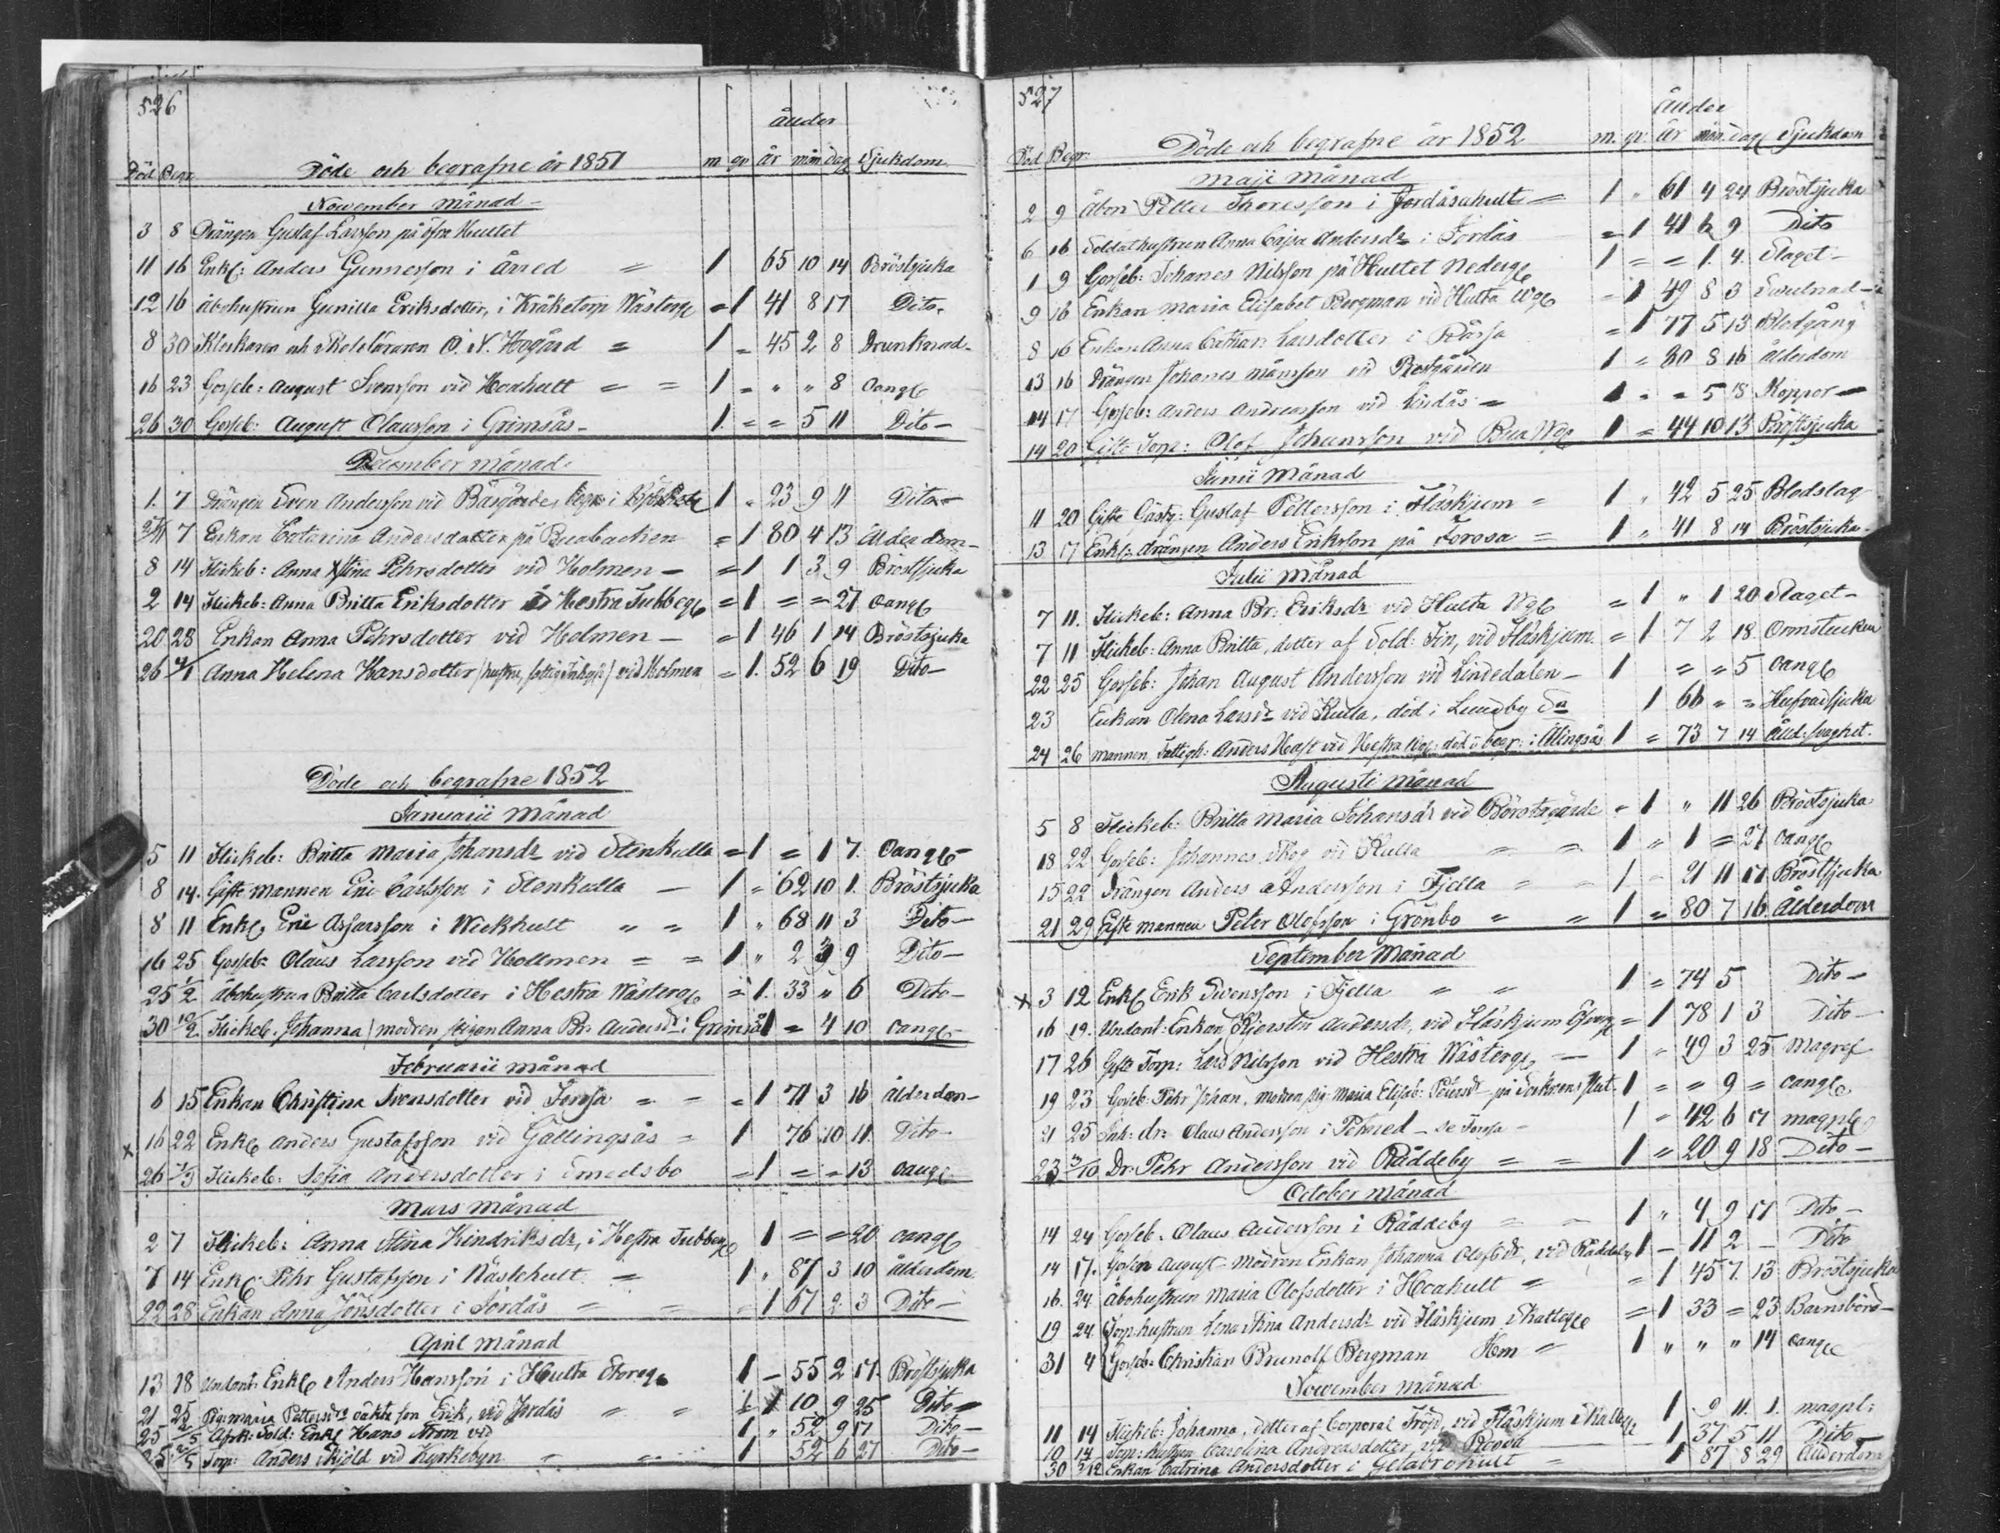 526
ålder
Död Begr. Döde och begrafne år 1851 m qv år mån dag Sjukdom
November månad
3 8 Drängen Gustaf Larsson på öfra Hultet
11 16 Enkl: Anders Gunnersson i Årred = 1 65 10 14 Bröstsjuka
12 16 Åbohustrun Gunilla Eriksdotter, i Kråketorp Wästerg = 1 41 8 17 Dito
8 30 Klockaren och Skoleläraren O. N. Hogård = 1 = 45 2 8 Drunknad
16 23 Gosseb: August Svensson vid Hoahult = = 1 = " " 8 oang
26 30 Gosseb: August Olausson i Grimsås 1 = = 5 11 Dito
December månad
1. 7 Drängen Sven Andersson vid 1 " 23 9 11 Dito
7 Enkan Catarina Andersdotter på Buabacken = 1 80 4 13 Ålderdom
8 14 Flickeb: Anna Stina Pehrsdotter vid Holmen = 1 1 3 9 Bröstsjuka
2 14 Flickeb: Anna Britta Eriksdotter i Hestra Tubbeg = 1 = = 27 oang
20 28 Enkan Anna Pehrsdotter vid Holmen = 1 46 1 14 Bröstsjuka
26 4/1 Anna Helena Hansdotter vid Holmen = 1. 52 6 19 Dito
Döde och begrafne 1852
Januarii Månad
5 11 Flickeb: Britta Maria Johansdr vid Stenkulla = 1 = 1 7 oang
8 14. Gifte mannen Eric Carlsson i Stenkulla 1 = 62 10 1. Bröstsjuka
8 11 Enkl Eric Assarsson i Wickhult " = 1 " 68 11 3 Dito
16 25 Gosseb: Olaus Larsson vid Hollmen = = 1 " 2 9 Dito
25 1/2 Åbohustrun Britta Carlsdotter i Hestra Wästerg = 1. 33 " 6 Dito
30 10/2 Flickeb. Johanna / modren pigan Anna Br. Andersdr i Grimsås 1 = 4 10 oang
Februarii månad
6 15 Enkan Christina Svensdotter vid Torssa = = 1 71 3 16 ålderdom
x 16 22 Enkl Anders Gustafsson vid Gällingsås = 1 76 10 11. Dito
26 7/3 Flickeb: Sofia Andersdotter i Smedsbo = 1 = = 13 oang
Mars Månad
2 7 Flickeb: Anna Stina Hindriksdr, i Hestra Tubbeg 1 = = 20 oang
7 14 Enkl Pehr Gustafsson i Nästehult = 1 " 87 3 10 ålderdom
22 28 Enkan Anna Jonsdotter i Jordås = = 1 67 2 3 Dito
April månad
13 18 Undant: Enkl Anders Hansson i Hulta Storeg 1 = 55 2 17 Bröstsjuka
21 25 Pig: Maria Pettersdrs oäkta son Erik, vid Jordås " " 1 10 9 25 Dito
25 2/5 Afsk: Sold: Enkl Hans Strom vid 1 " 52 9 17 Dito
25 2/5 Torp: Anders Skjöld vid Kyrkebyn 1 52 6 27 Dito
527
ålder
Död Begr: Döde och begrafne år 1852 m. qv. år mån. dag Sjukdom
Maji Månad
2 9 Åbon Petter Thoresson i Jordåsahult = 1 " 61 4 24 Bröstsjuka
6 16 Soldathustrun Anna Cajsa Andersdr i Jordås = 1 41 6 9 Dito
1 9 Gosseb: Johanes Nilsson på Hultet Nederg 1 = = 1. 4. Slaget
9 16 Enkan Maria Elisabet Bergman vid Hulta Wg = 1 49 8 3 Swulnad
8 16 Enkan Anna Cathar: Larsdotter i = 1 77 5 13 Blodgång
13 16 Drängen Johanes Månsson vid Prestgården 1 = 80 8 16 ålderdom
14 17 Gosseb: Anders Andreasson vid Lindås = 1 = = 5 18 Koppor
14 20 Gifte Torp: Olof Johansson vid Bua Wg 1 = 44 10 13 Bröstsjuka
Junii Månad
11 20 Gifte Gästg: Gustaf Pettersson i Fläskjum = 1 " 42 5 25 Blodslag
13 17 Enkl: drängen Anders Eriksson på Torosa = 1 " 41 8 14 Bröstsjuka
Julii Månad
7 11. Flickeb: Anna Br: Eriksdr vid Hulta Wg = 1 " 1 20 Slaget
7 11 Flickeb: Anna Britta, dotter af Sold: Fin, vid Fläskjum = 1 7 2 18. Ormstucken
22 25 Gosseb: Johan August Andersson vid Lindedalen 1 = " 5 oang
23 Enkan Olena Larsdr vid Kulla, död i Lundby Sn 1 66 " = Hufvudsjuka
24 26 mannen, Fattigh: Anders Hast vid Hestra död o begr: i Alingsås 1 = 73 7 14 And: svaghet.
Augusti Månad
5 8 Flickeb: Britta Maria Johansdr vid Börstagärde = 1 " 11 26 Bröstsjuka
18 22 Gosseb: Johannes Skog vid Kulla = = 1 " 1 = 27 oang
15 22 Drängen Anders Andersson i Fjella = = 1 = 21 11 17 Bröstsjuka
21 29 Gifte mannen Peter Olofsson i Grönbo = = 1 = 80 7 16 Ålderdom
September Månad
x 3 12 Enkl Erik Svensson i Fjella " " 1 = 74 5 Dito
16 19. Undant: Enkan Kjerstin Andersdr, vid Fläskjum = 1 78 1 3 Dito
17 26 Gifte Torp: Lars Nilsson vid Hestra Wästerg 1 = 49 3 25 Magref
19 23 Gosseb: Pehr Johan, modren pig: Maria Elisab: Petersdr på 1 = = 9 = oang
21 25 Inh: dr: Olaus Andersson i 1 = 42 6 17 magpl
23 3/10 Dr: Pehr Andersson vid Räddeby = = 1 = 20 9 18 Dito
October månad
14 24 Gosseb. Olaus Andersson i Räddeby = = 1 " 4 9 17 Dito
14 17. Gossen August Modren Enkan Johanna Olofsdr, vid Räddeby 1 11 2 Dito
16. 24 Åbohustrun Maria Olofsdotter i Hoahult = = 1 45 7. 13 Bröstsjuka
19 24. Torp.hustrun Lena Stina Andersdr vid Fläskjum Skatteg = 1 33 = 23 Barnsbörd
31 4 Gosseb: Christian Brunolf Bergman Hem = 1 " " " 14 oang
November månad
11 14 Flickeb: Johanna, dotter af Corporal Fröjd, vid Fläskjum 1 9 11. 1. magpl:
10 14 Torp: hustrun Carolina Andreasdotter, vid 1 37 5 11 Dito
30 Enkan Catrina Andersdotter i Gelabrohult = 1 87 8 29 Ålderdom